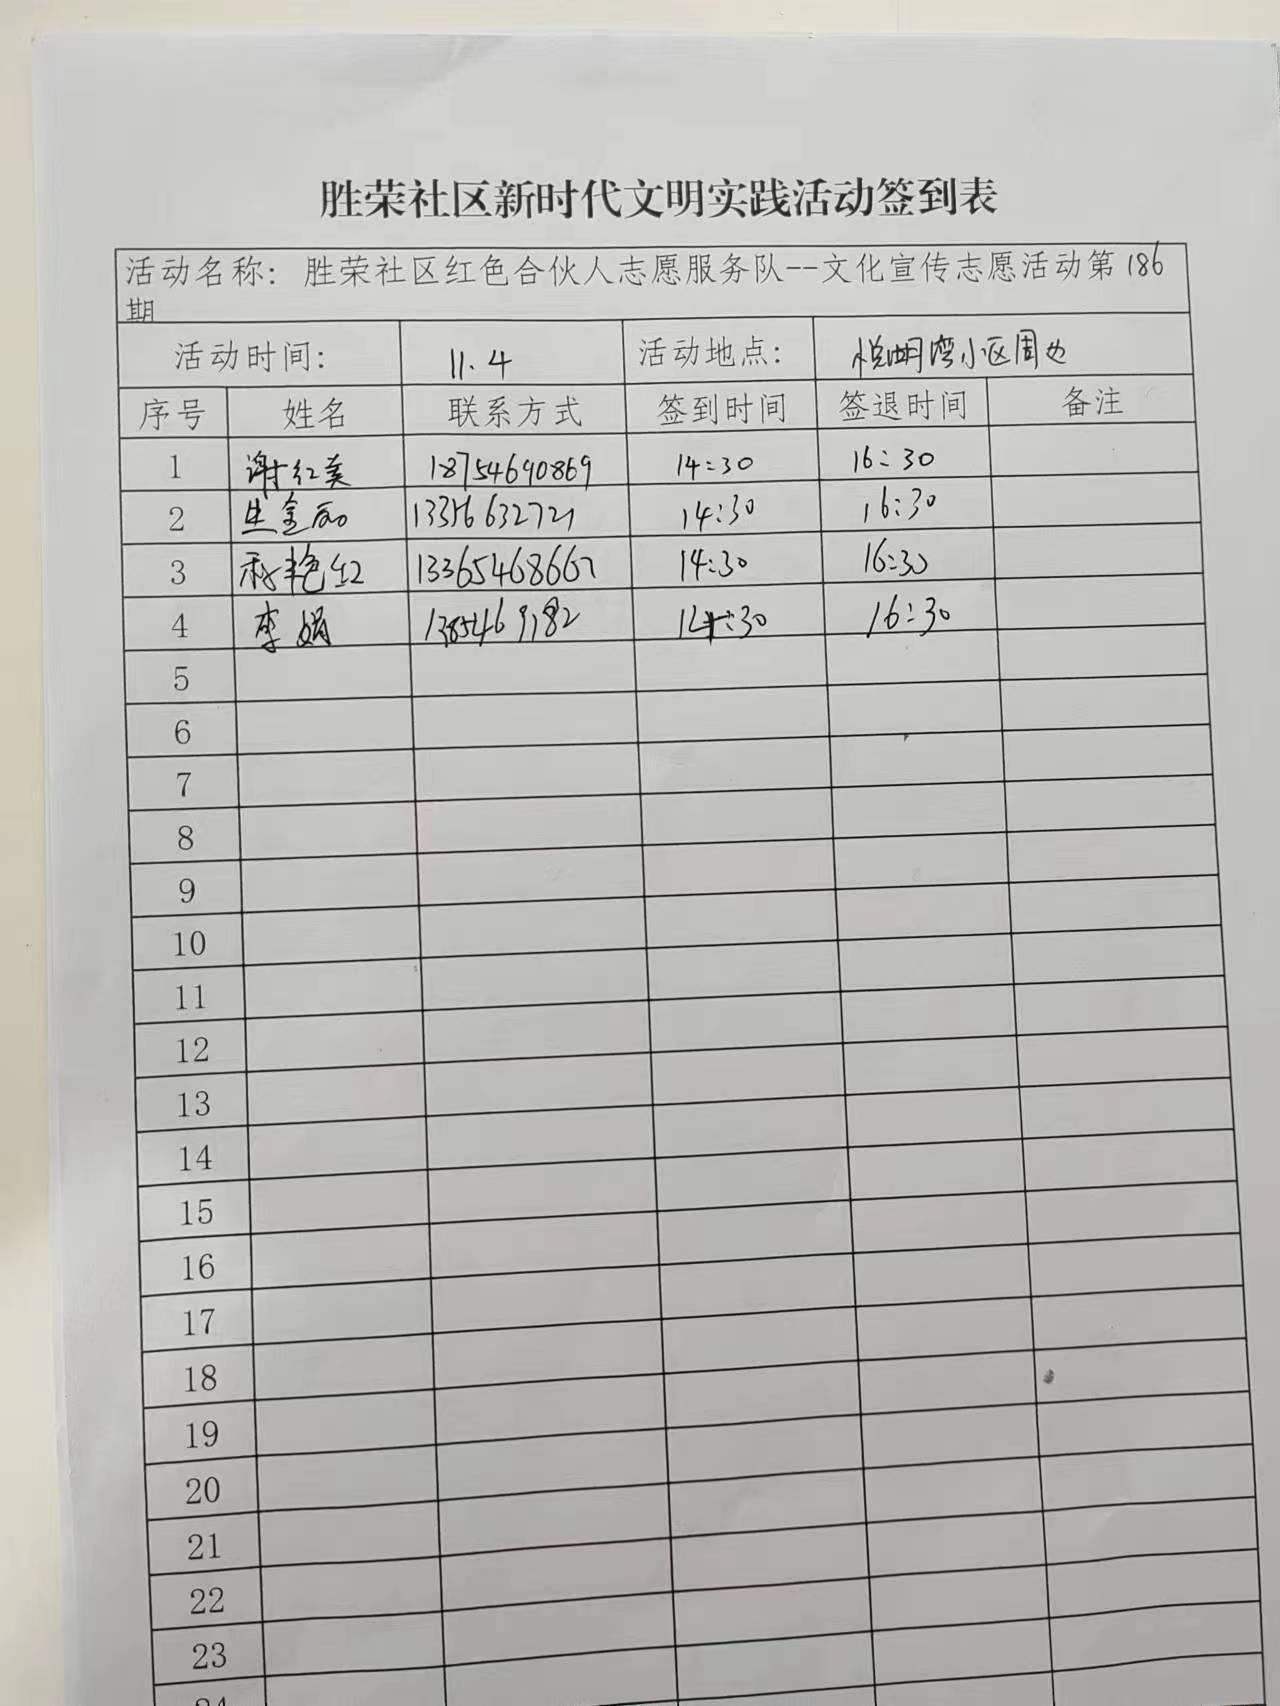 胜荣社区新时代文明实践活动签到表
活动名称：胜荣社区红色合伙人志愿服务队--文化宣传志愿活动第186
期
活动时间： 11.4 活动地点： 悦湖湾小区周边
序号 姓名 联系方式 签到时间 签退时间 备注
1 谢红美 18754690869 14:30 16:30
2 生金丽 14:30 16:30
3 艳红 13365468667 14:30 16:30
4 李娟 14:30 16:30
5
6
7
8
9
10
11
12
13
14
15
16
17
18
19
20
21
22
23
24